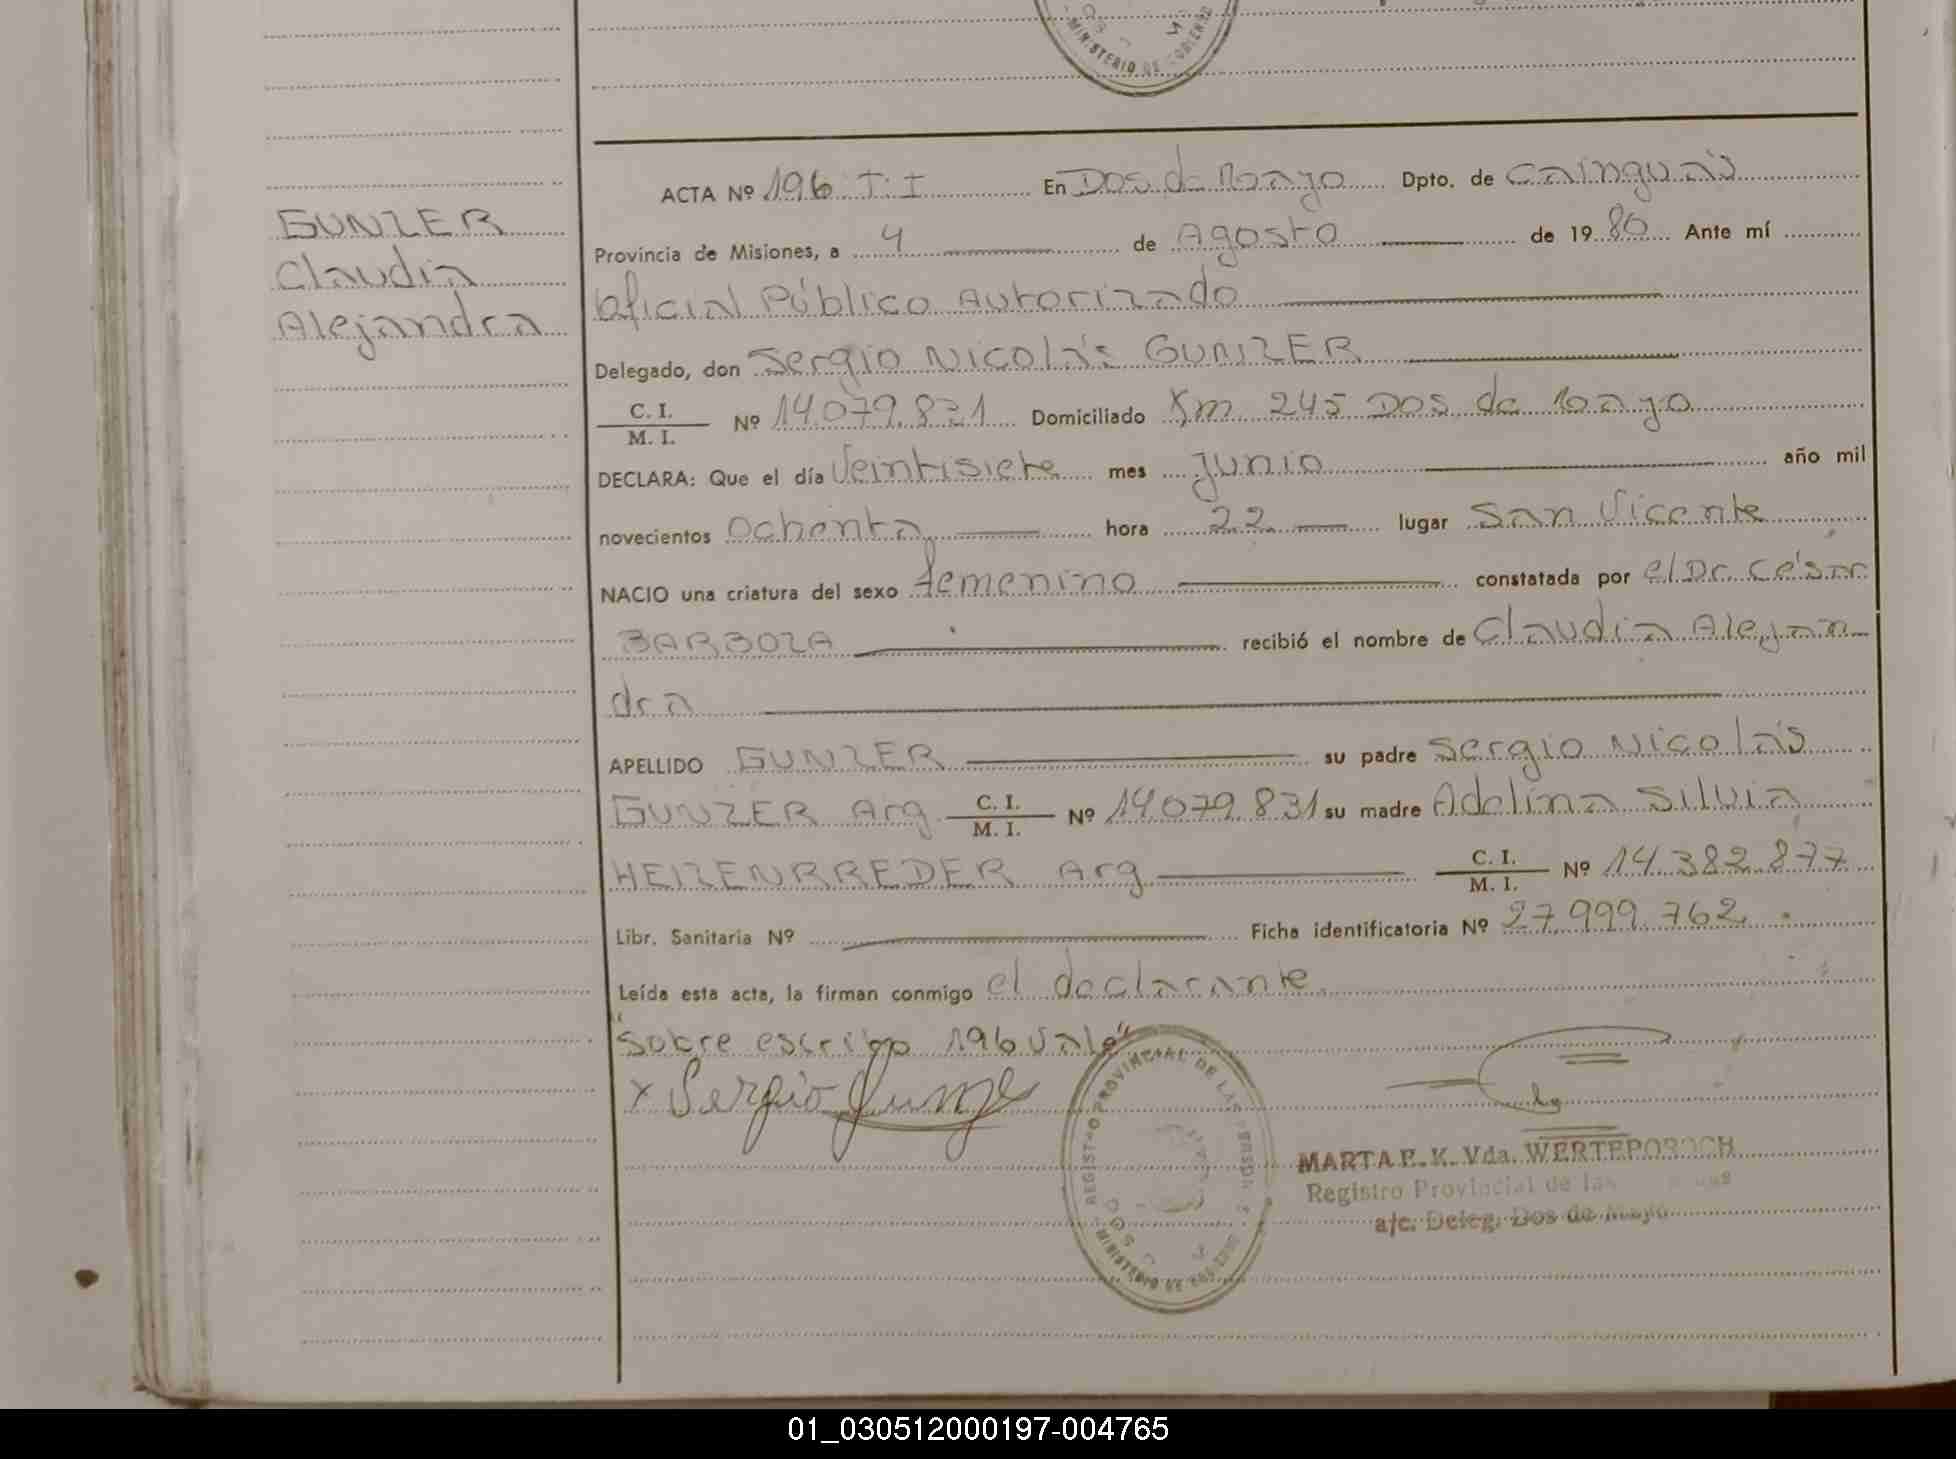 MINISTERIO DE GOBIERNO
GUNZER
Claudia
Alejandra
ACTA Nº 196 T.I En Dos de Mayo Dpto. de Cainguás
Provincia de Misiones, a 4 de Agosto de 1980 Ante mí
Oficial Público Autorizado
Delegado, don Sergio Nicolás GUNZER
C. I.
M. I.
Nº 14.079.831 Domiciliado Km 245 Dos de Mayo
DECLARA: Que el día Veintisiete mes Junio año mil
novecientos Ochenta hora 22 lugar San Vicente
NACIO una criatura del sexo femenino constatada por el Dr. César
BARBOZA recibió el nombre de Claudia Alejan
dra
APELLIDO GUNZER su padre Sergio Nicolás
GUNZER Arg. C. I. M. I. Nº 14.079.831 su madre Adelina Silvia
HEIZENRREDER Arg C. I. M. I. Nº 14.382.877
Libr. Sanitaria Nº Ficha identificatoria Nº 27.999.762
Leída esta acta, la firman conmigo el declarante.
"Sobre escribo 196 vale"
x Sergio Gunzer
REGISTRO PROVINCIAL DE LAS PERSONAS
MINISTERIO DE GOBIERNO
MARTA E. K. Vda. WERTEPOROCH
Registro Provincial de las Personas
a/c. Deleg. Dos de Mayo
01_030512000197-004765